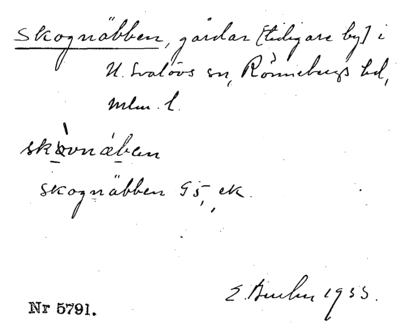 Skognäbben, gårdar [tidigare by] i
N. Svalövs sn, Rönnebergs hd,
Mlm. l.
skògnäben
skognäbben G5, ek.
E. 1933.
Nr 5791.